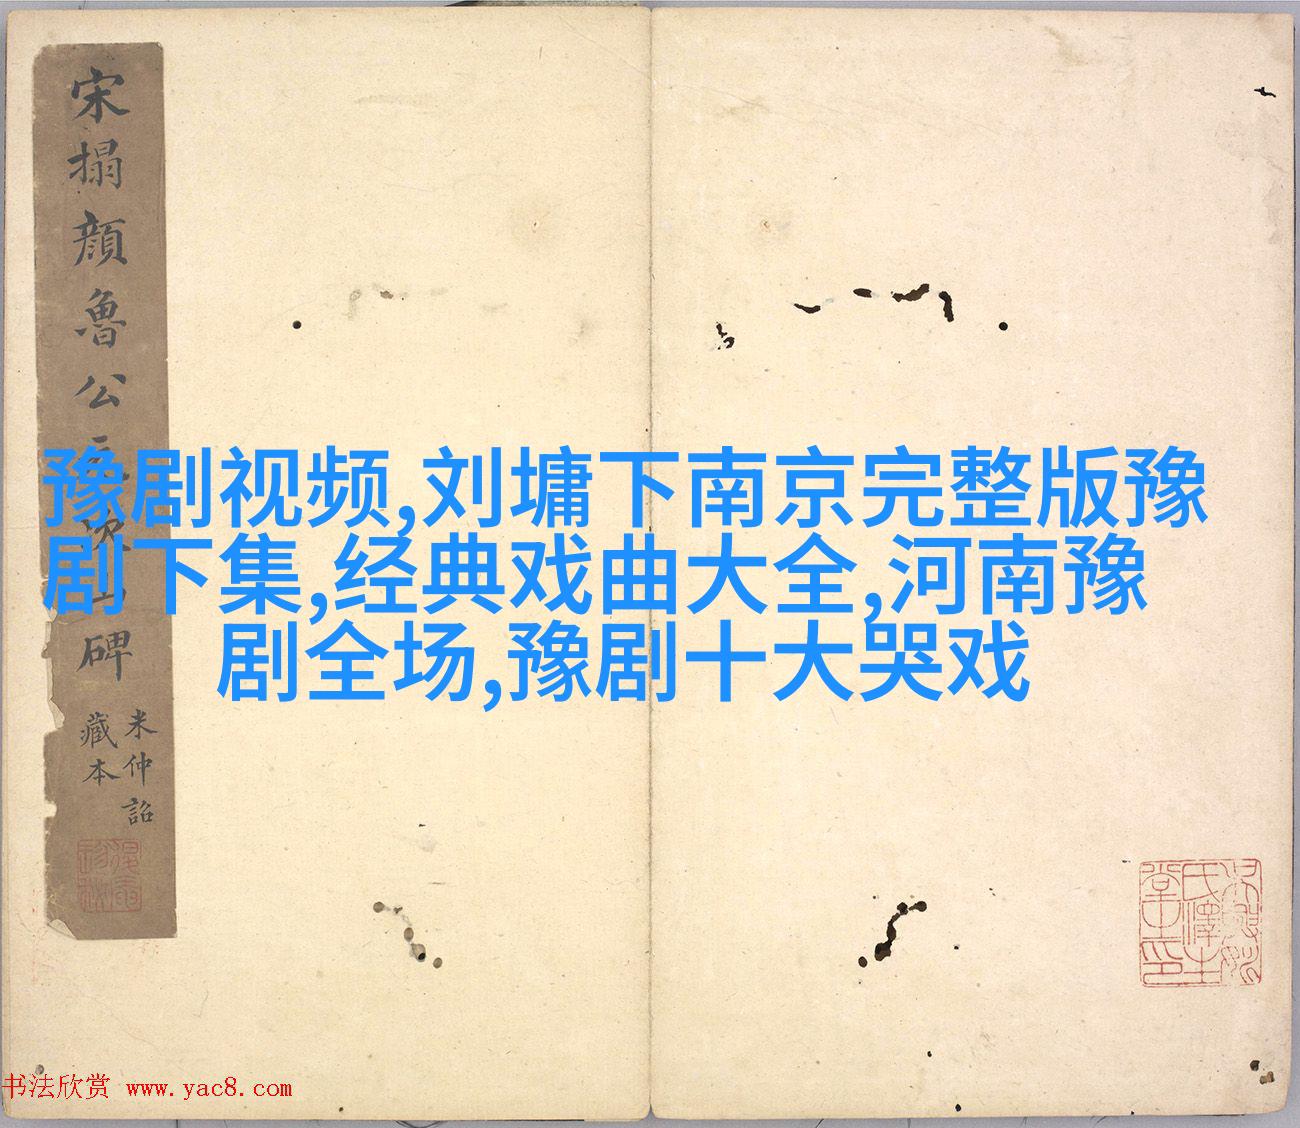 宋搨顔魯公元次山碑
米仲詔
藏本
豫剧视频,刘墉下南京完整版豫
剧下集,经典戏曲大全,河南豫
剧全场,豫剧十大哭戏
书法欣赏 www.yac8.com